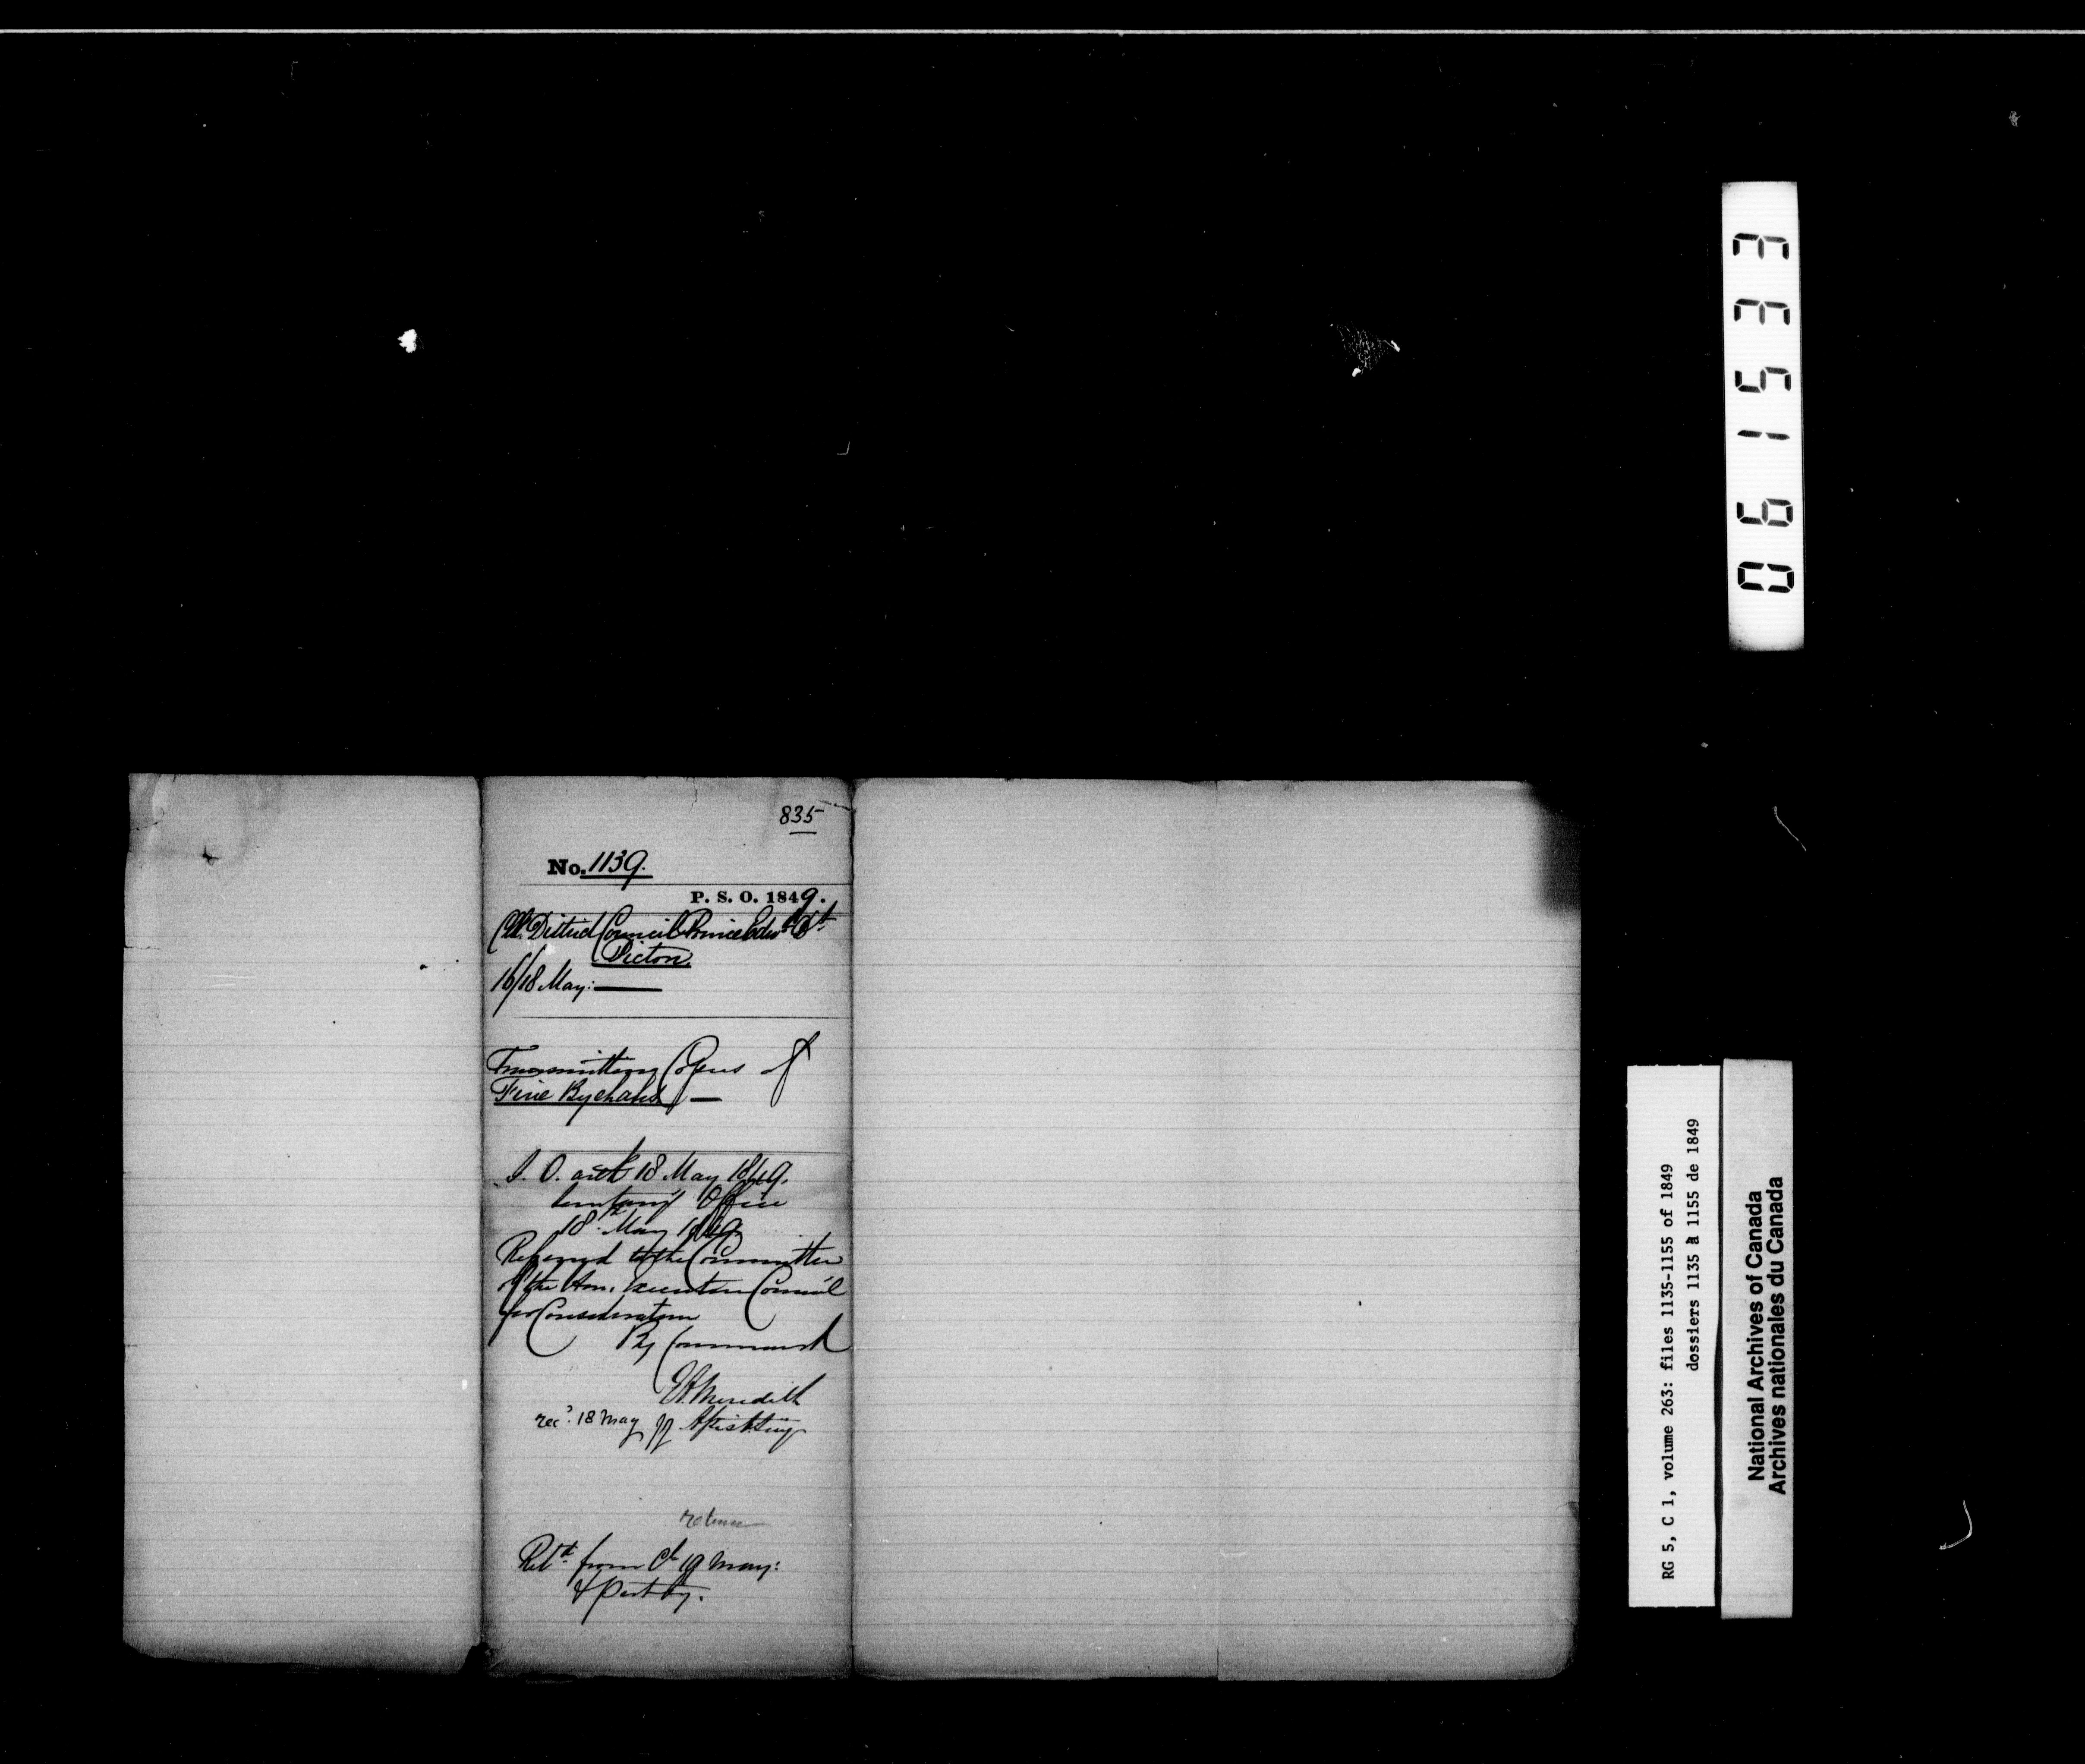 835
No. 1139.
P. S. O. 1849.
Clk. District Council Prince Edwd Dt
Picton.
16/18 May:
Transmitting Copies of
Five Bye Laws
S. O. ack 18 May 1849.
Office
18th May 1849
Referred to the Committee
of the Hon. Executive Council
for Consideration
By Command
E A Meredith
rec'd. 18 May Asst Secy
Retd from Cl 19 May:
061533
RG 5, C 1, volume 263: files 1135-1155 of 1849
dossiers 1135 à 1155 de 1849
National Archives of Canada
Archives nationales du Canada